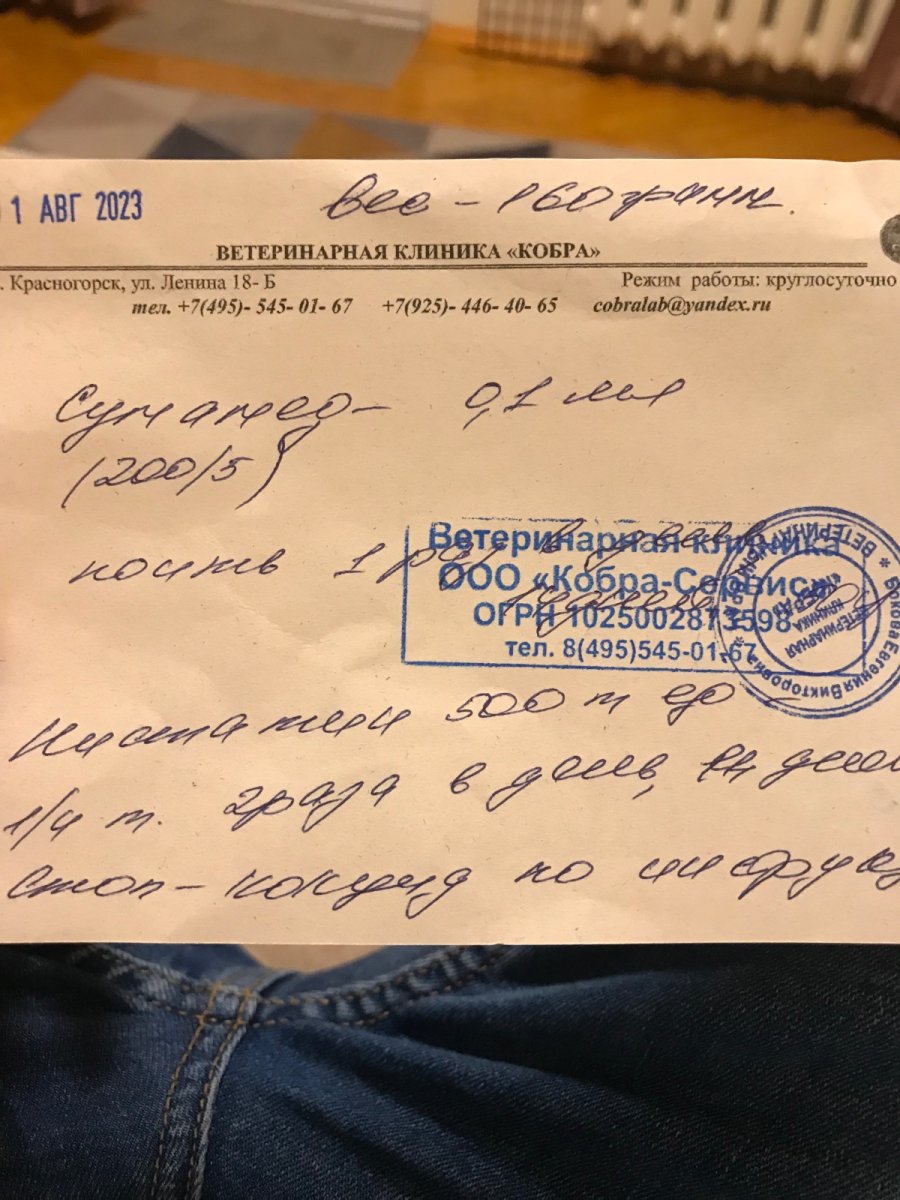 1 АВГ 2023
вес - 160 грамм.
ВЕТЕРИНАРНАЯ КЛИНИКА «КОБРА»
. Красногорск, ул. Ленина 18- Б
Режим работы: круглосуточно
тел. +7(495)- 545- 01- 67 +7(925)- 446- 40- 65 cobralab@yandex.ru
Сумамед - 0,1 мл
(200/5)
1 раз в день
Ветеринарная клиника
ООО «Кобра-Сервис»
ОГРН 1025002873598
тел. 8(495)545-01-67
ВЕТЕРИНАРНАЯ
КЛИНИКА
Бокова Евгения Викторовна * 
Нистатин 500 т ед -
1/4 т. 2 раза в день, 14 дней
Стоп-кокцид по